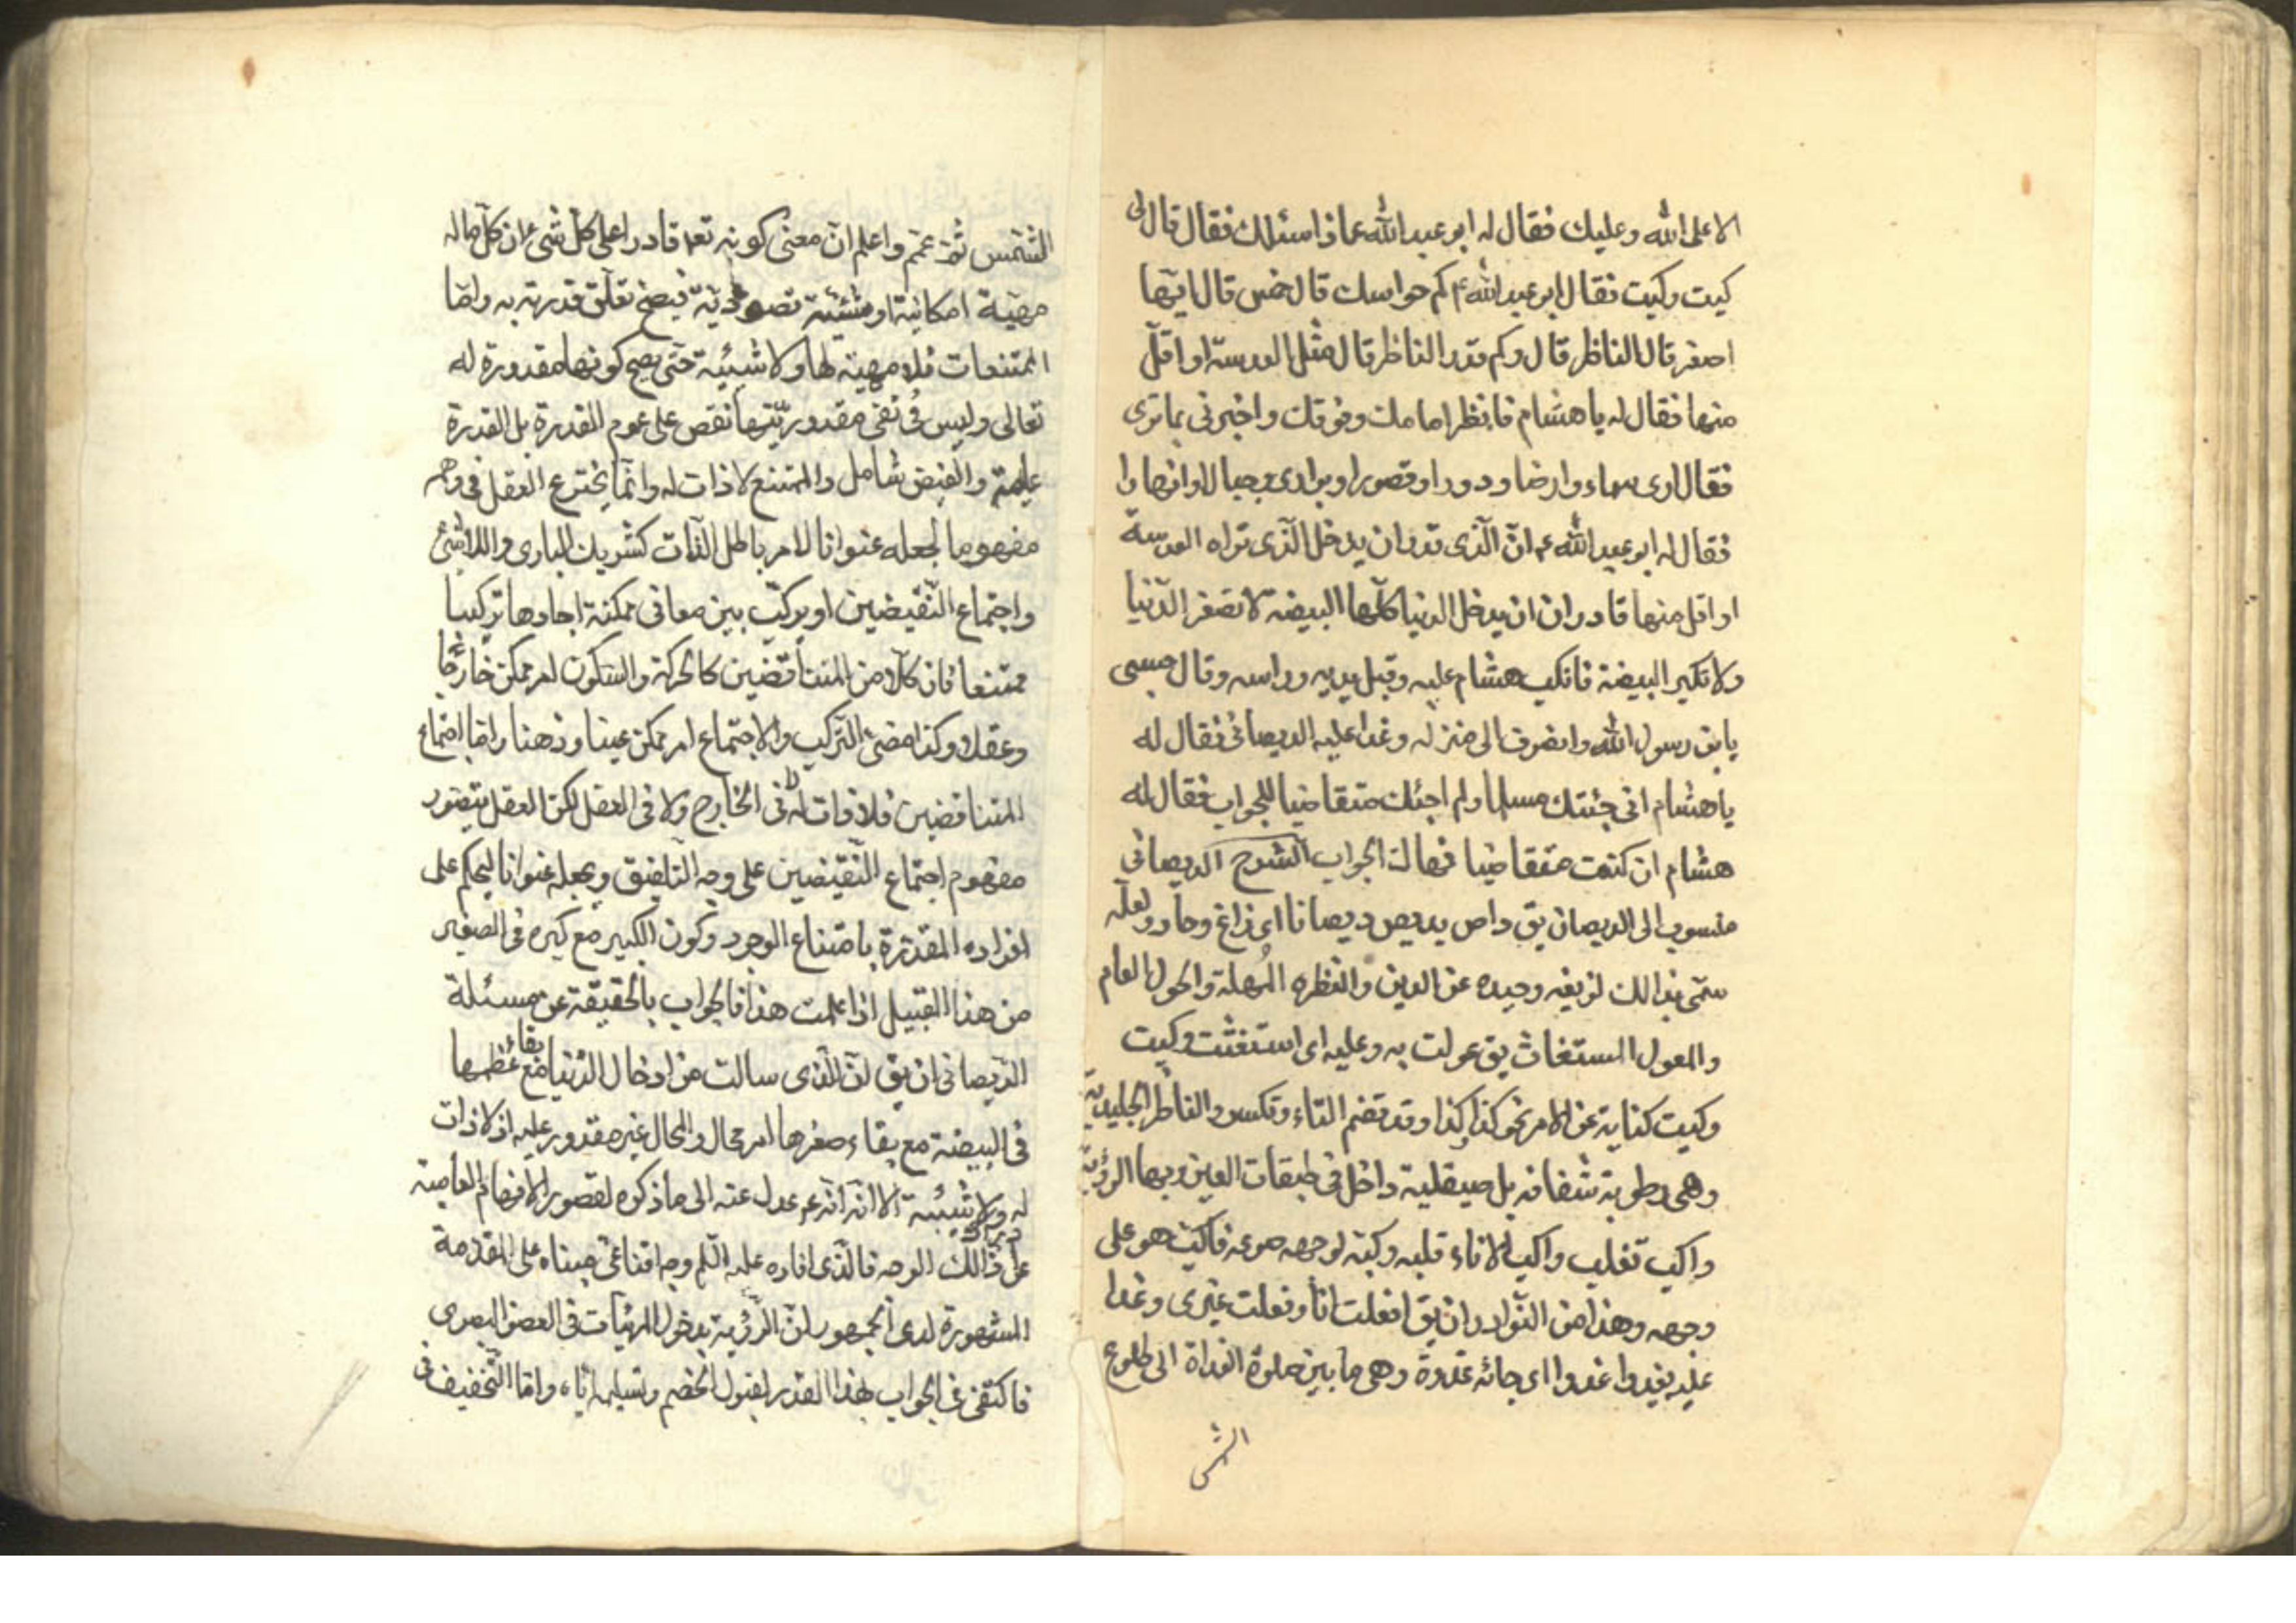 الا على الله وعليك فقال له ابو عبد الله عماذا اسئلك فقال قال لى
كيت وكيت فقال ابو عبد الله ع كم حواسك قال خمس قال ايّها
اصغر قال الناظر قال وكم قدر الناظر قال مثل العدسة او اقلّ
منها فقال له يا هشام فانظر امامك وفوقك واخبرنى بما ترى
فقال ارى سماء وارضا ودورا وقصورا وبرارى وجبالا وانهارا
فقال له ابو عبد الله ع انّ الّذى قدر ان يدخل الّذى تراه العدسة
او اقل منها قادر ان ان يدخل الدنيا كلّها البيضة لا تصغر الدّنيا
ولا تكبر البيضة فانكب هشام عليه وقبل يديه وراسه وقال حسبى
يابن رسول الله وانصرف الى منزله وغدا عليه الديصانى فقال له
يا هشام انى جئتك مسلما ولم اجئك متقاضيا للجواب فقال له
هشام ان كنت متقاضيا فهاك الجواب الشرح الديصانى
منسوب الى الديصان يق داص يديص ديصانا اى زاغ وحاد ولعلّه
سمّى بذالك لزيغه وحيده عن الدين والنظره المُهلة والحول العام
والمعول المستغاث يق عولت به وعليه اى استغثت وكيت
وكيت كناية عن الامر نحو كذا كذا وقد تضم التاء وتكسر والناظر الجليديّة
وهى رطوبة شفافه بل صيقلية داخل فى طبقات العين وبها الرؤية
واكب تغلب واكب الاناء قلبه وكبّه لوجهه صرعه فاكبّ هو على
وجهه وهذا من النّوادر ان يق افعلت انا وفعلت غيرى وغدا
عليه يغدوا غدوا اى جائه غدوة وهى ما بين صلوة الغداة الى طلوع
الشمس
الشّمس ثمّ عمّم واعلم انّ معنى كونه تعه قادرا على كل شىء ان كلّ ماله
مهيّة امكانية او شيئية تصورية فيصحّ تعلّق قدرته به وامّا
الممتنعات فلا مهيّة لها ولا شيئية حتّى يصح كونها مقدورة له
تعالى وليس فى نفى مقدوريّتها نقص على عموم القدرة بل القدرة
عامة والفيض شامل والممتنع لا ذات له وانّما يخترع العقل فى وهمه
مفهوما يجعله عنوانا لامر باطل الذّات كشريك البارى واللاشىء
واجتماع النّقيضين او يركّب بين معانى ممكنة احادها تركيبا
ممتنعا فان كلّا من المتناقضين كالحركة والسّكون امر ممكن خارجا
وعقلا وكذا معنى التّركيب والاجتماع امر ممكن عينا وذهنا وامّا اجتماع
المتناقضين فلا ذات له لا فى الخارج ولا فى العقل لكنّ العقل يتصور
مفهوم اجتماع النّقيضين على وجه التّلفيق ويجعله عنوانا ليحكم على
افراده المقدّرة بامتناع الوجود وكون الكبير مع كبره فى الصغير
من هذا القبيل اذا علمت هذا فالجواب بالحقيقة عن مسئلة
الدّيصانى ان يق انّ الّذى سالت من ادخال الدّنيا مع بقاء عظمها
فى البيضة مع بقاء صغرها امر محال والمحال غير مقدور عليه اذ لا ذات
له ولا شيئية الا انّه ع عدل عنه الى ما ذكره لقصور الافهام العامية
عن ذالك الوجه فالّذى افاده عليه السّلم وجه اقناعىّ مبناه على المقدّمة
المشهورة لدى الجمهور انّ الرّؤية بدخول المرئيات فى العضو البصرى
فاكتفى فى الجواب بهذا القدر لقبول الخصم وتسليمه ايّاه وامّا التّحقيق فى